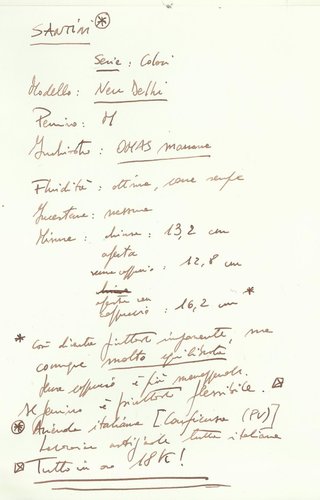 SANTINI ⊛
Serie : Colori
Modello : New Delhi
Pennino : M
Inchiostro : OMAS marrone
Fluidità : ottima, come sempre
Incertezze : nessuna
Misure : chiusa : 13,2 cm
aperta
senza cappuccio : 12,8 cm
aperta con
cappuccio : 16,2 cm *
* Così diventa piuttosto imponente, ma
comunque molto equilibrata
senza cappuccio è più maneggevole.
Il pennino è piuttosto flessibile.
⊛ Azienda italiana [Confienza (PV)]
Lavorazione artigianale tutta italiana
Tutto in oro 18K!